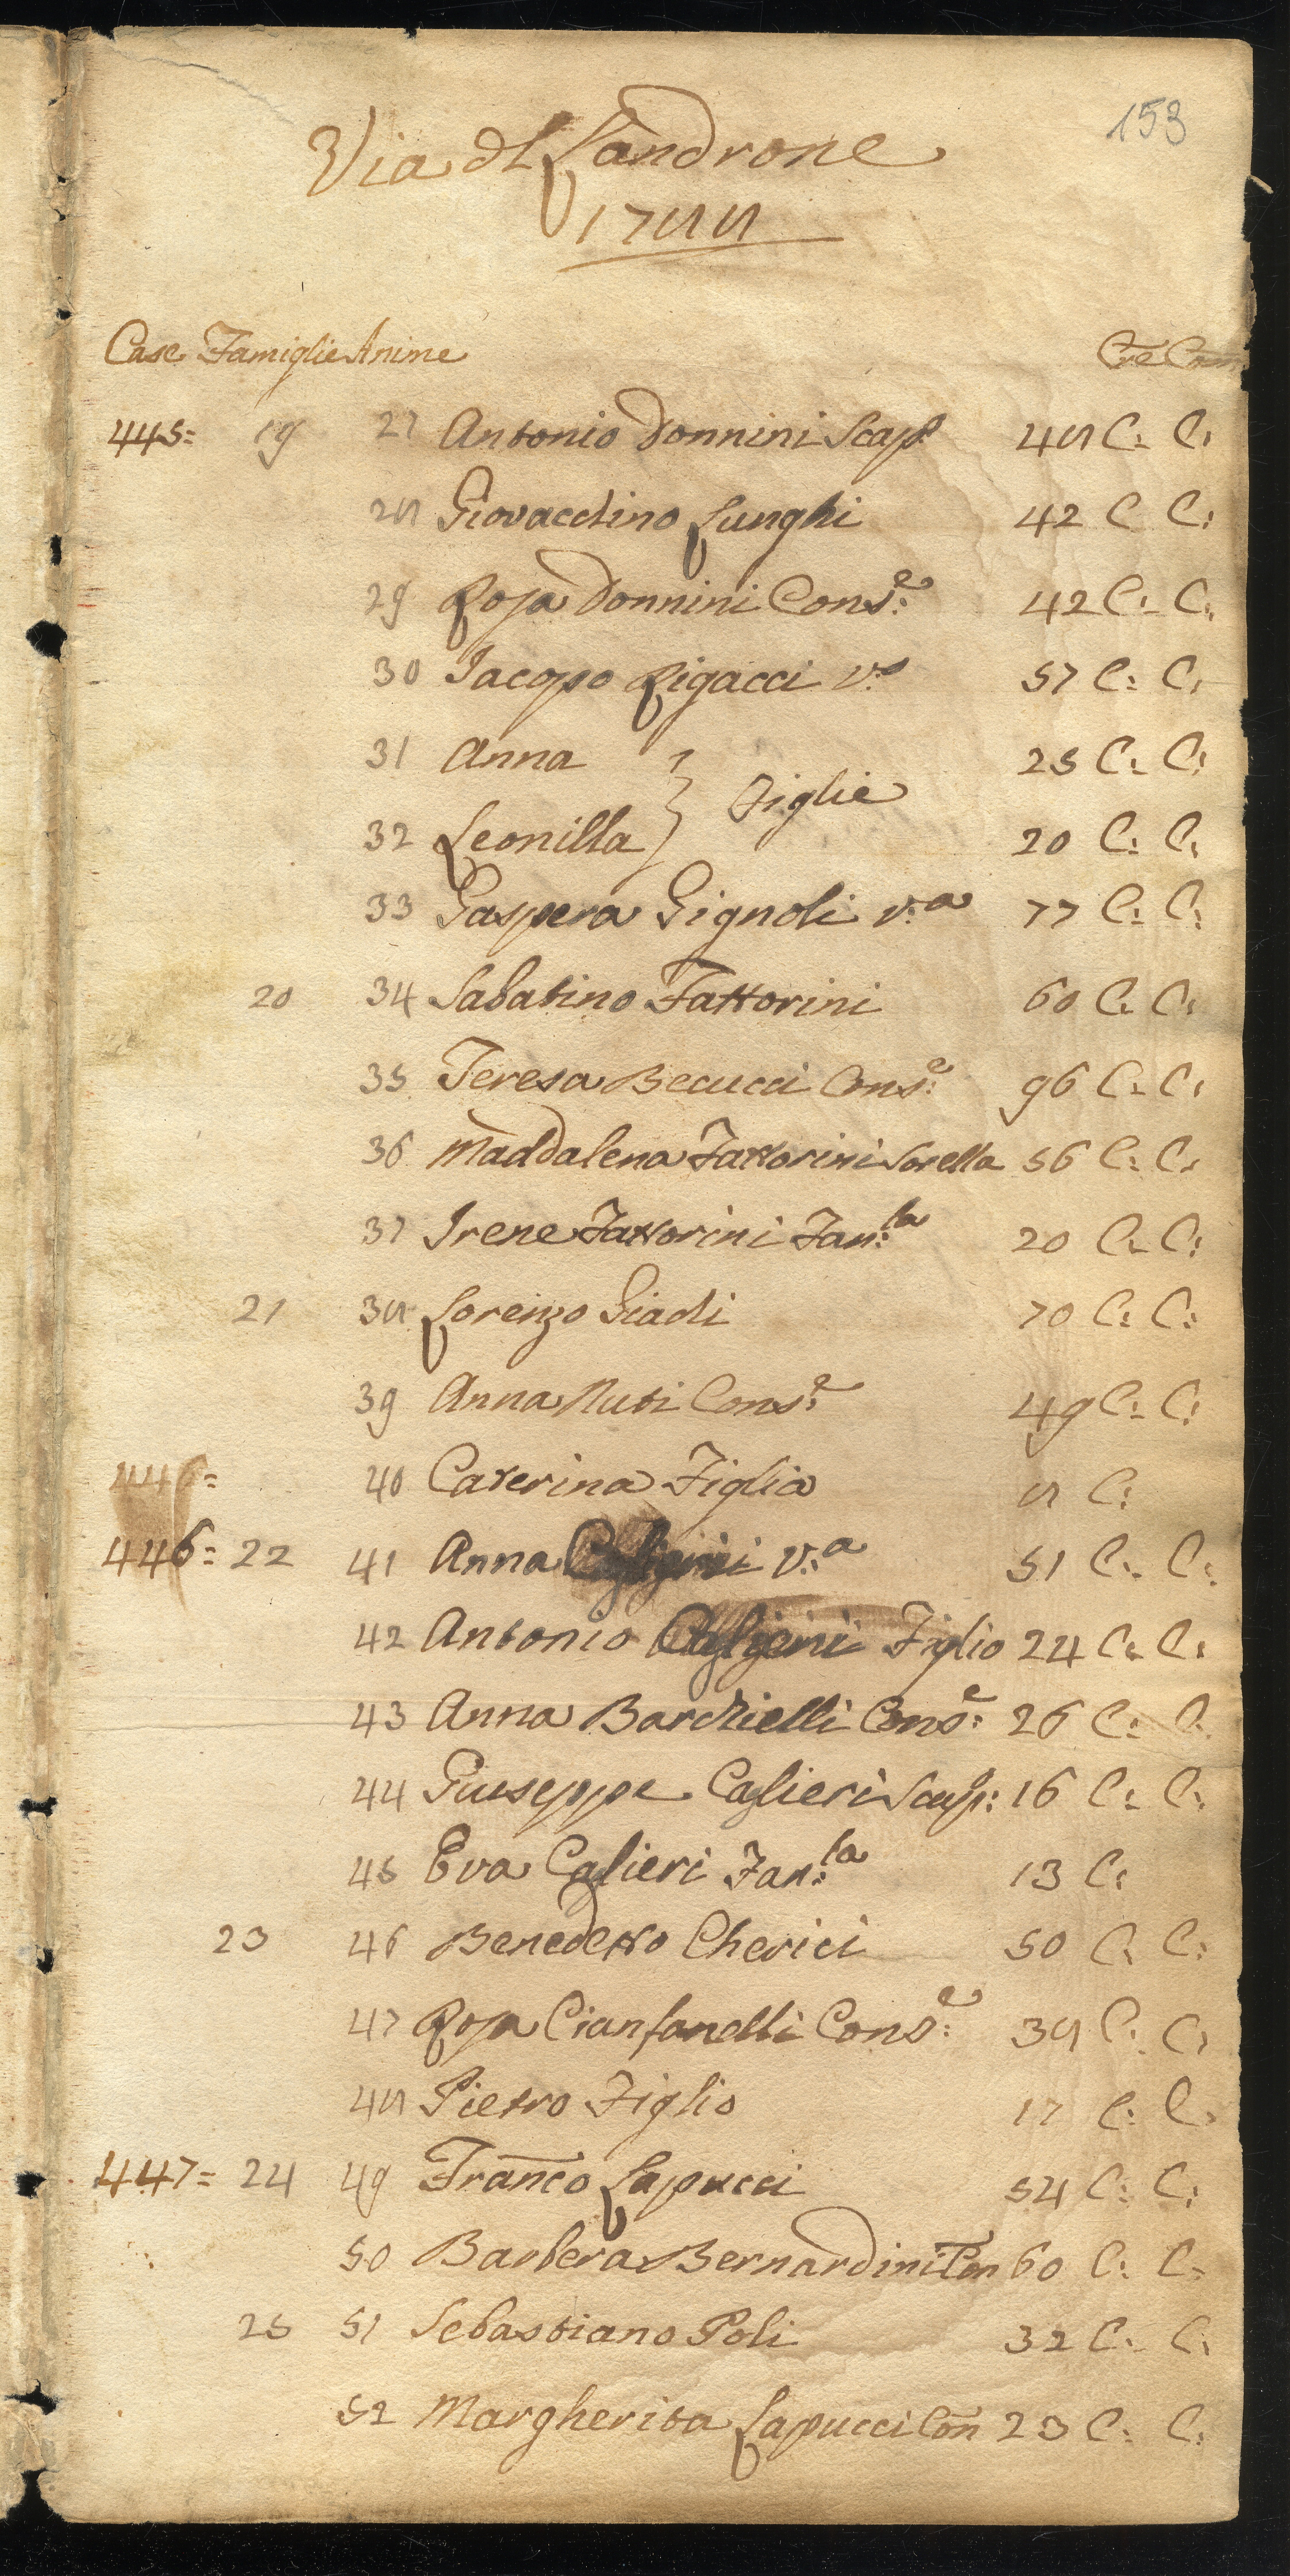 153
Via dl Landrone
1788
Case Famiglie Anime Cre Com
445= 19 27 Antonio Donnini Scap.o 48 C: C:
28 Giovacchino Lunghi 42 C C:
29 Rosa Donnini Cons.e 42 C: C:
30 Jacopo Rigacci v.o 57 C: C:
31 Anna } Figlie 25 C: C:
32 Leonilla } 20 C: C:
33 Gaspera Gignoli v.a 77 C: C:
20 34 Sabatino Fattorini 60 C: C:
35 Teresa Becucci Cons.e 96 C: C:
36 Maddalena Fattorini Sorella 56 C: C:
37 Irene Fattorini Fan:la 20 C: C:
21 38 Lorenzo Giadi 70 C: C:
39 Anna Nuti Cons.e 49 C: C:
446= 40 Caterina Figlia 8 C:
446= 22 41 Anna v.a 51 C: C:
42 Antonio Figlio 24 C: C:
43 Anna Barchielli Cons.e 26 C: C:
44 Giuseppe Caglieri Scap: 16 C: C:
45 Eva Caglieri Fan:la 13 C:
23 46 Benedetto Cherici 50 C: C:
47 Rosa Cianfanelli Cons.e 38 C: C:
48 Pietro Figlio 17 C: C:
447= 24 49 Franco Lapucci 54 C: C:
50 Barbera Bernardini Con 60 C: C:
25 51 Sebastiano Poli 32 C: C:
52 Margherita Lapucci Con 23 C: C: